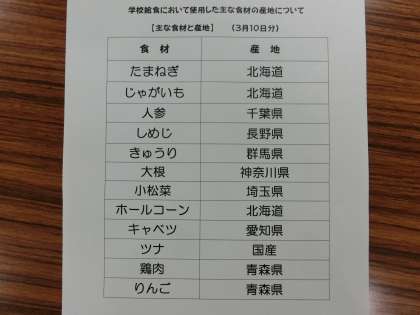 学校給食において使用した主な食材の産地について
【主な食材と産地】 (3月10日分)
食 材 産 地
たまねぎ 北海道
じゃがいも 北海道
人参 千葉県
しめじ 長野県
きゅうり 群馬県
大根 神奈川県
小松菜 埼玉県
ホールコーン 北海道
キャベツ 愛知県
ツナ 国産
鶏肉 青森県
りんご 青森県